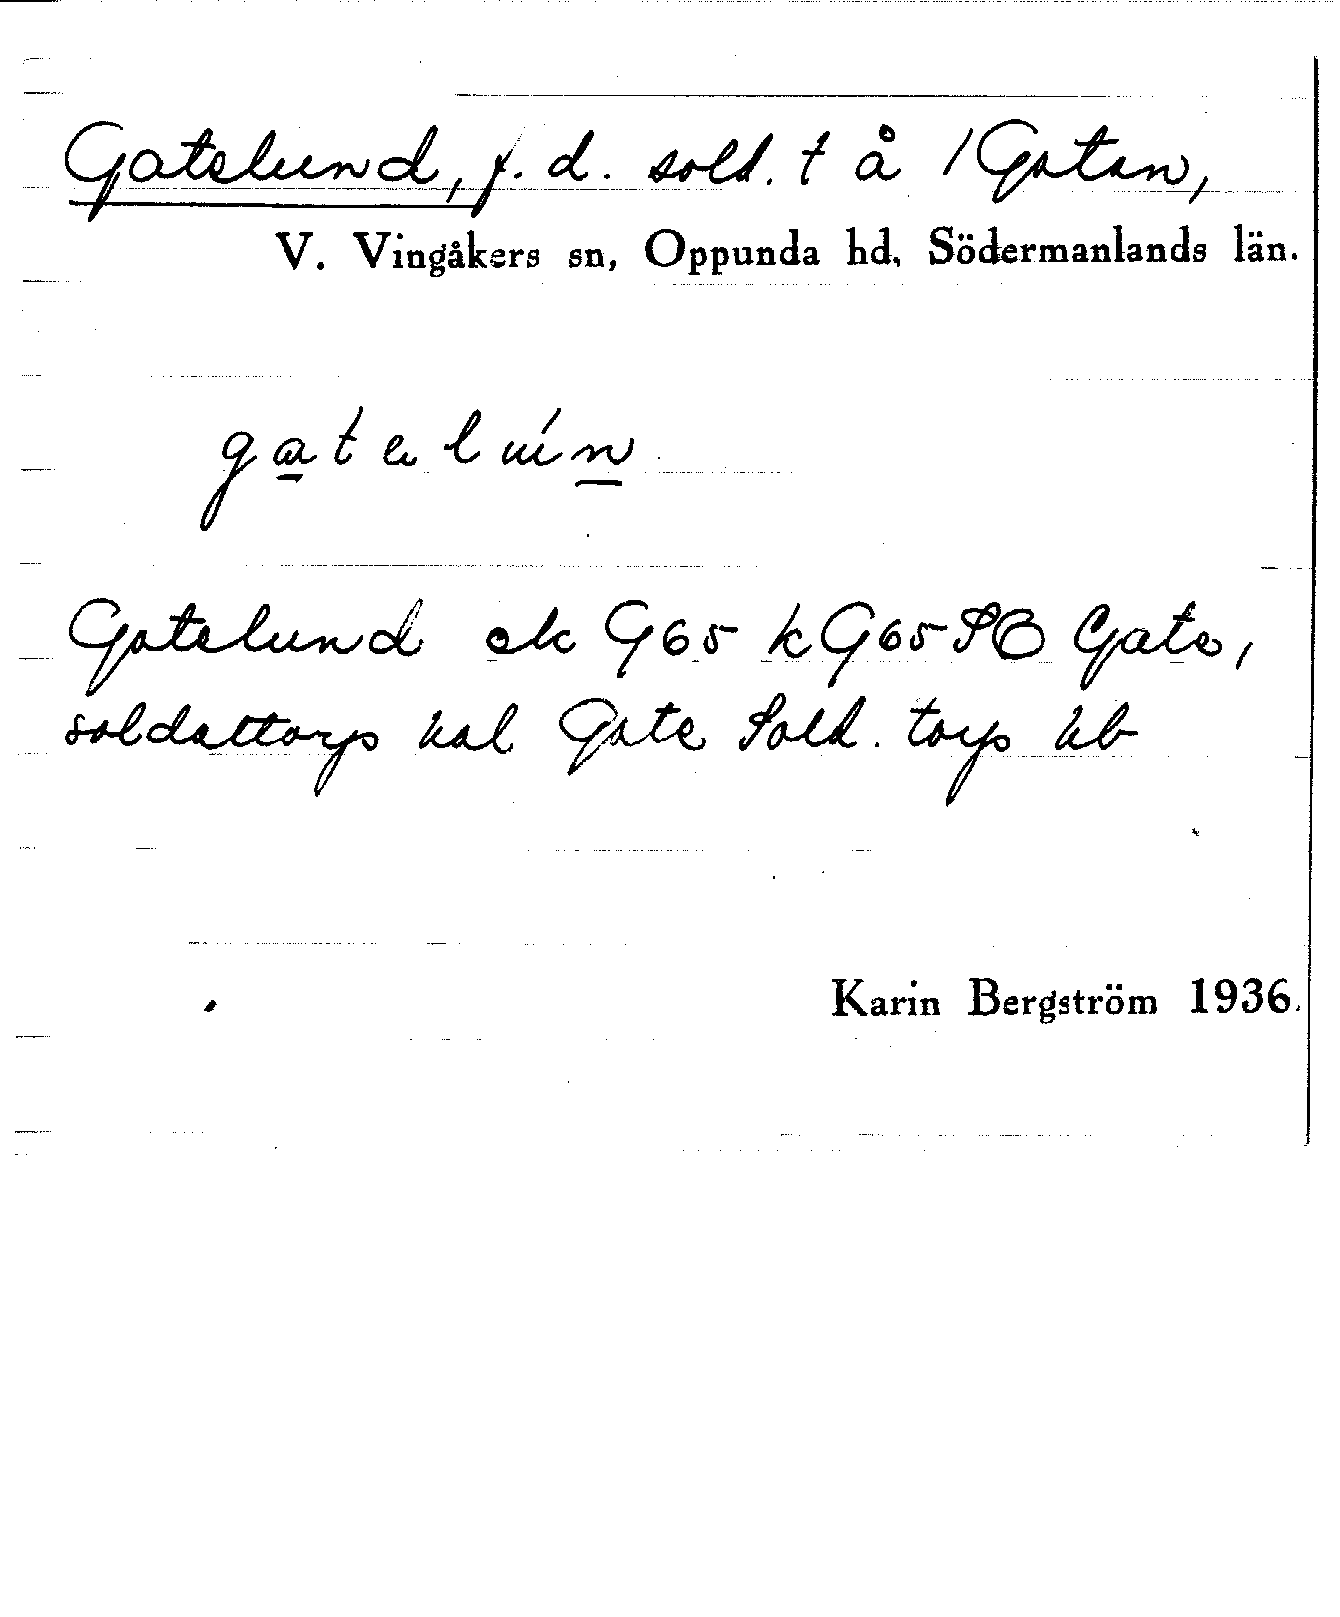 Gatelund, f. d. sold. t å 1 Gatan,
V. Vingåkers sn, Oppunda hd, Södermanlands län.
gatelún
Gatelund ek G65 k G65 SO Gate,
soldattorp hal Gate Sold. torp hb
Karin Bergström 1936.